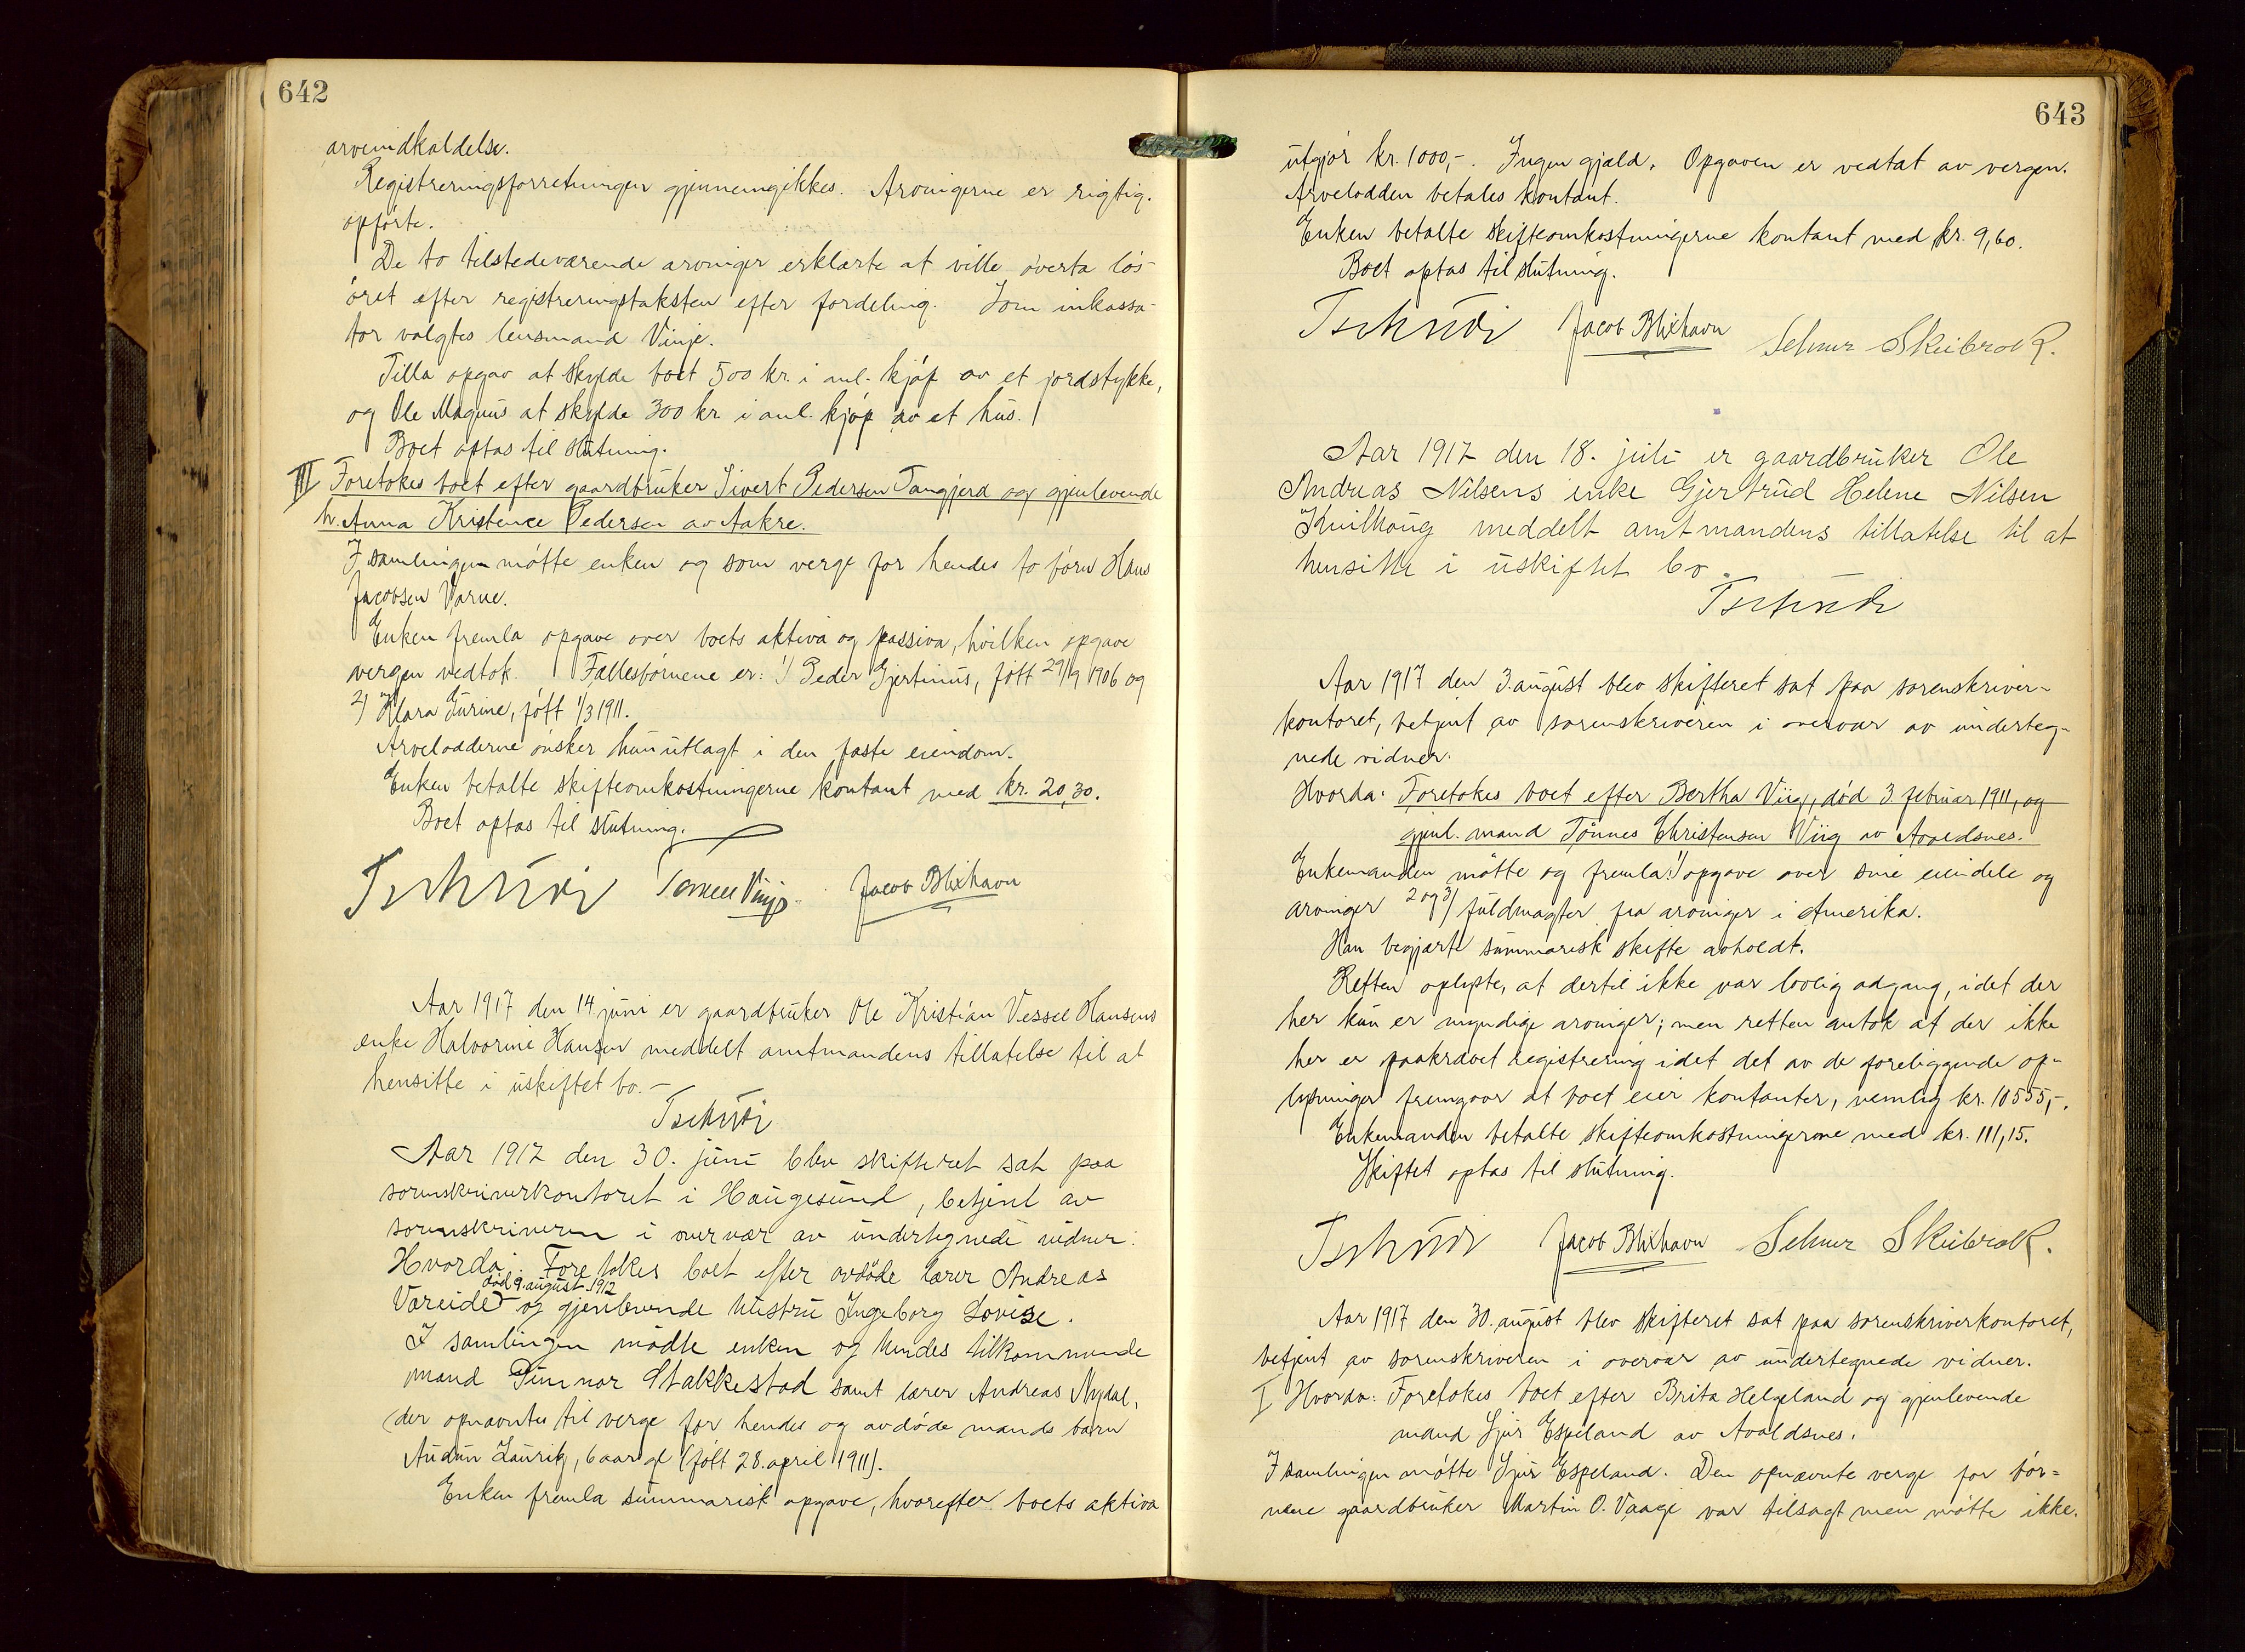 642
arveindkaldelse.
Registreringsforretningen gjennemgikkes. Arvingerne er rigtig
opførte.
De to tilstedeværende arvinger erklærte at ville overta løs-
øret efter registreringstaksten efter fordeling. Som inkassa-
tor valgtes lensmand Vinje.
Tilla opgav at skylde boet 500 kr. i anl. kjøp av et jordstykke,
og Ole Magnus at skylde 300 kr i anl. kjøp av et hus.
Boet optas til slutning.
III Foretokes boet efter gaardbruker Sivert Pedersen Tangjerd og gjenlevende
h. Anna Kristence Pedersen av Aakre.
I samlingen møtte enken og som verge for hendes to børn Hans
Jacobsen Varne.
Enken fremla opgave over boets aktiva og passiva, hvilken opgave
vergen vedtok. Fællesbørnene er: 1) Peder Gjertinius, født 29/9 1906 og
2) Klara Gurine, født 1/3 1911.
Arvelodderne ønsker hun utlagt i den faste eiendom.
Enken betalte skifteomkostningerne kontant med kr. 20,30.
Boet optas til slutning.
Tschudi Tormell Vinje. Jacob Blixhavn
Aar 1917 den 14 juni er gaardbruker Ole Kristian Vessel Hansens
enke Halvorine Hansen meddelt amtmandens tillatelse til at
hensitte i uskiftet bo.-
Tschudi
Aar 1917 den 30. juni blev skifteret sat paa
sorenskriverkontoret i Haugesund, betjent av
sorenskriveren i overvær av undertegnede vidner:
Hvorda: Foretokes boet efter avdøde lærer Andreas
død 9. august 1912
Vareide og gjenlevende hustru Ingeborg Lovise.
I samlingen mødte enken og hendes tilkommende
mand Gunnar Stakkestad samt lærer Andreas Nydal,
der opnævntes til verge for hendes og avdøde mands barn
Audun Lauritz, 6 aar gl (født 28. april 1911).
Enken fremla summarisk opgave, hvorefter boets aktiva
643
utgjør kr. 1000,-. Ingen gjæld. Opgaven er vedtat av vergen.
Arvelodden betales kontant.
Enken betalte skifteomkostningerne kontant med kr. 9,60.
Boet optas til slutning.
Tschudi Jacob Blixhavn Selmer Skeibrok.
Aar 1917 den 18. juli er gaardbruker Ole
Andreas Nilsens enke Gjertrud Helene Nilsen
Kvilhaug meddelt amtmandens tillatelse til at
hensitte i uskiftet bo.
Tschudi
Aar 1917 den 3. august blev skifteret sat paa sorenskriver-
kontoret, betjent av sorenskriveren i overvær av underteg-
nede vidner.
Hvorda: Foretokes boet efter Bertha Viig, død 3. februar 1911, og
gjenl. mand Tønnes Christensen Viig av Avaldsnes.
Enkemanden møtte og fremla 1) opgave over sine eiendele og
arvinger 2 og 3) fuldmagter fra arvinger i Amerika.
Han begjærte summarisk skifte avholdt.
Retten oplyste, at dertil ikke var lovlig adgang, idet der
her kun er myndige arvinger; men retten antok at der ikke
her er paakrævet registrering idet det av de foreliggende op-
lysninger fremgaar at boet eier kontanter, nemlig kr. 10555,-.
Enkemanden betalte skifteomkostningerne med kr. 111,15.
Skiftet optas til slutning.
Tschudi Jacob Blixhavn Selmer Skeibrok.
Aar 1917 den 30. august blev skifteret sat paa sorenskriverkontoret,
betjent av sorenskriveren i overvær av undertegnede vidner.
I Hvorda: Foretokes boet efter Brita Helgeland og gjenlevende
mand Sjur Espeland av Avaldsnes.
I samlingen møtte Sjur Espeland. Den opnævnte verge for bør-
nene gaardbruker Martin O. Vaage var tilsagt men møtte ikke.